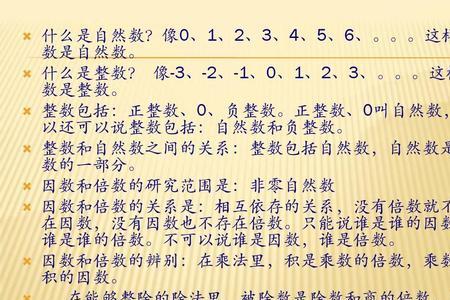 什么是自然数？像0、1、2、3、4、5、6、。。。这样
数是自然数。
什么是整数？ 像-3、-2、-1、0、1、2、3、。。。。这
数是整数。
整数包括：正整数、0、负整数。正整数、0叫自然数，
以还可以说整数包括：自然数和负整数。
整数和自然数之间的关系：整数包括自然数，自然数是
数的一部分。
因数和倍数的研究范围是：非零自然数
因数和倍数的关系是：相互依存的关系，没有倍数就不
在因数，没有因数也不存在倍数。只能说谁是谁的因数
谁是谁的倍数。不可以说谁是因数，谁是倍数。
因数和倍数的辨别：在乘法里，积是乘数的倍数，乘数
积的因数。
在能够整除的除法里，被除数是除数和商的倍数